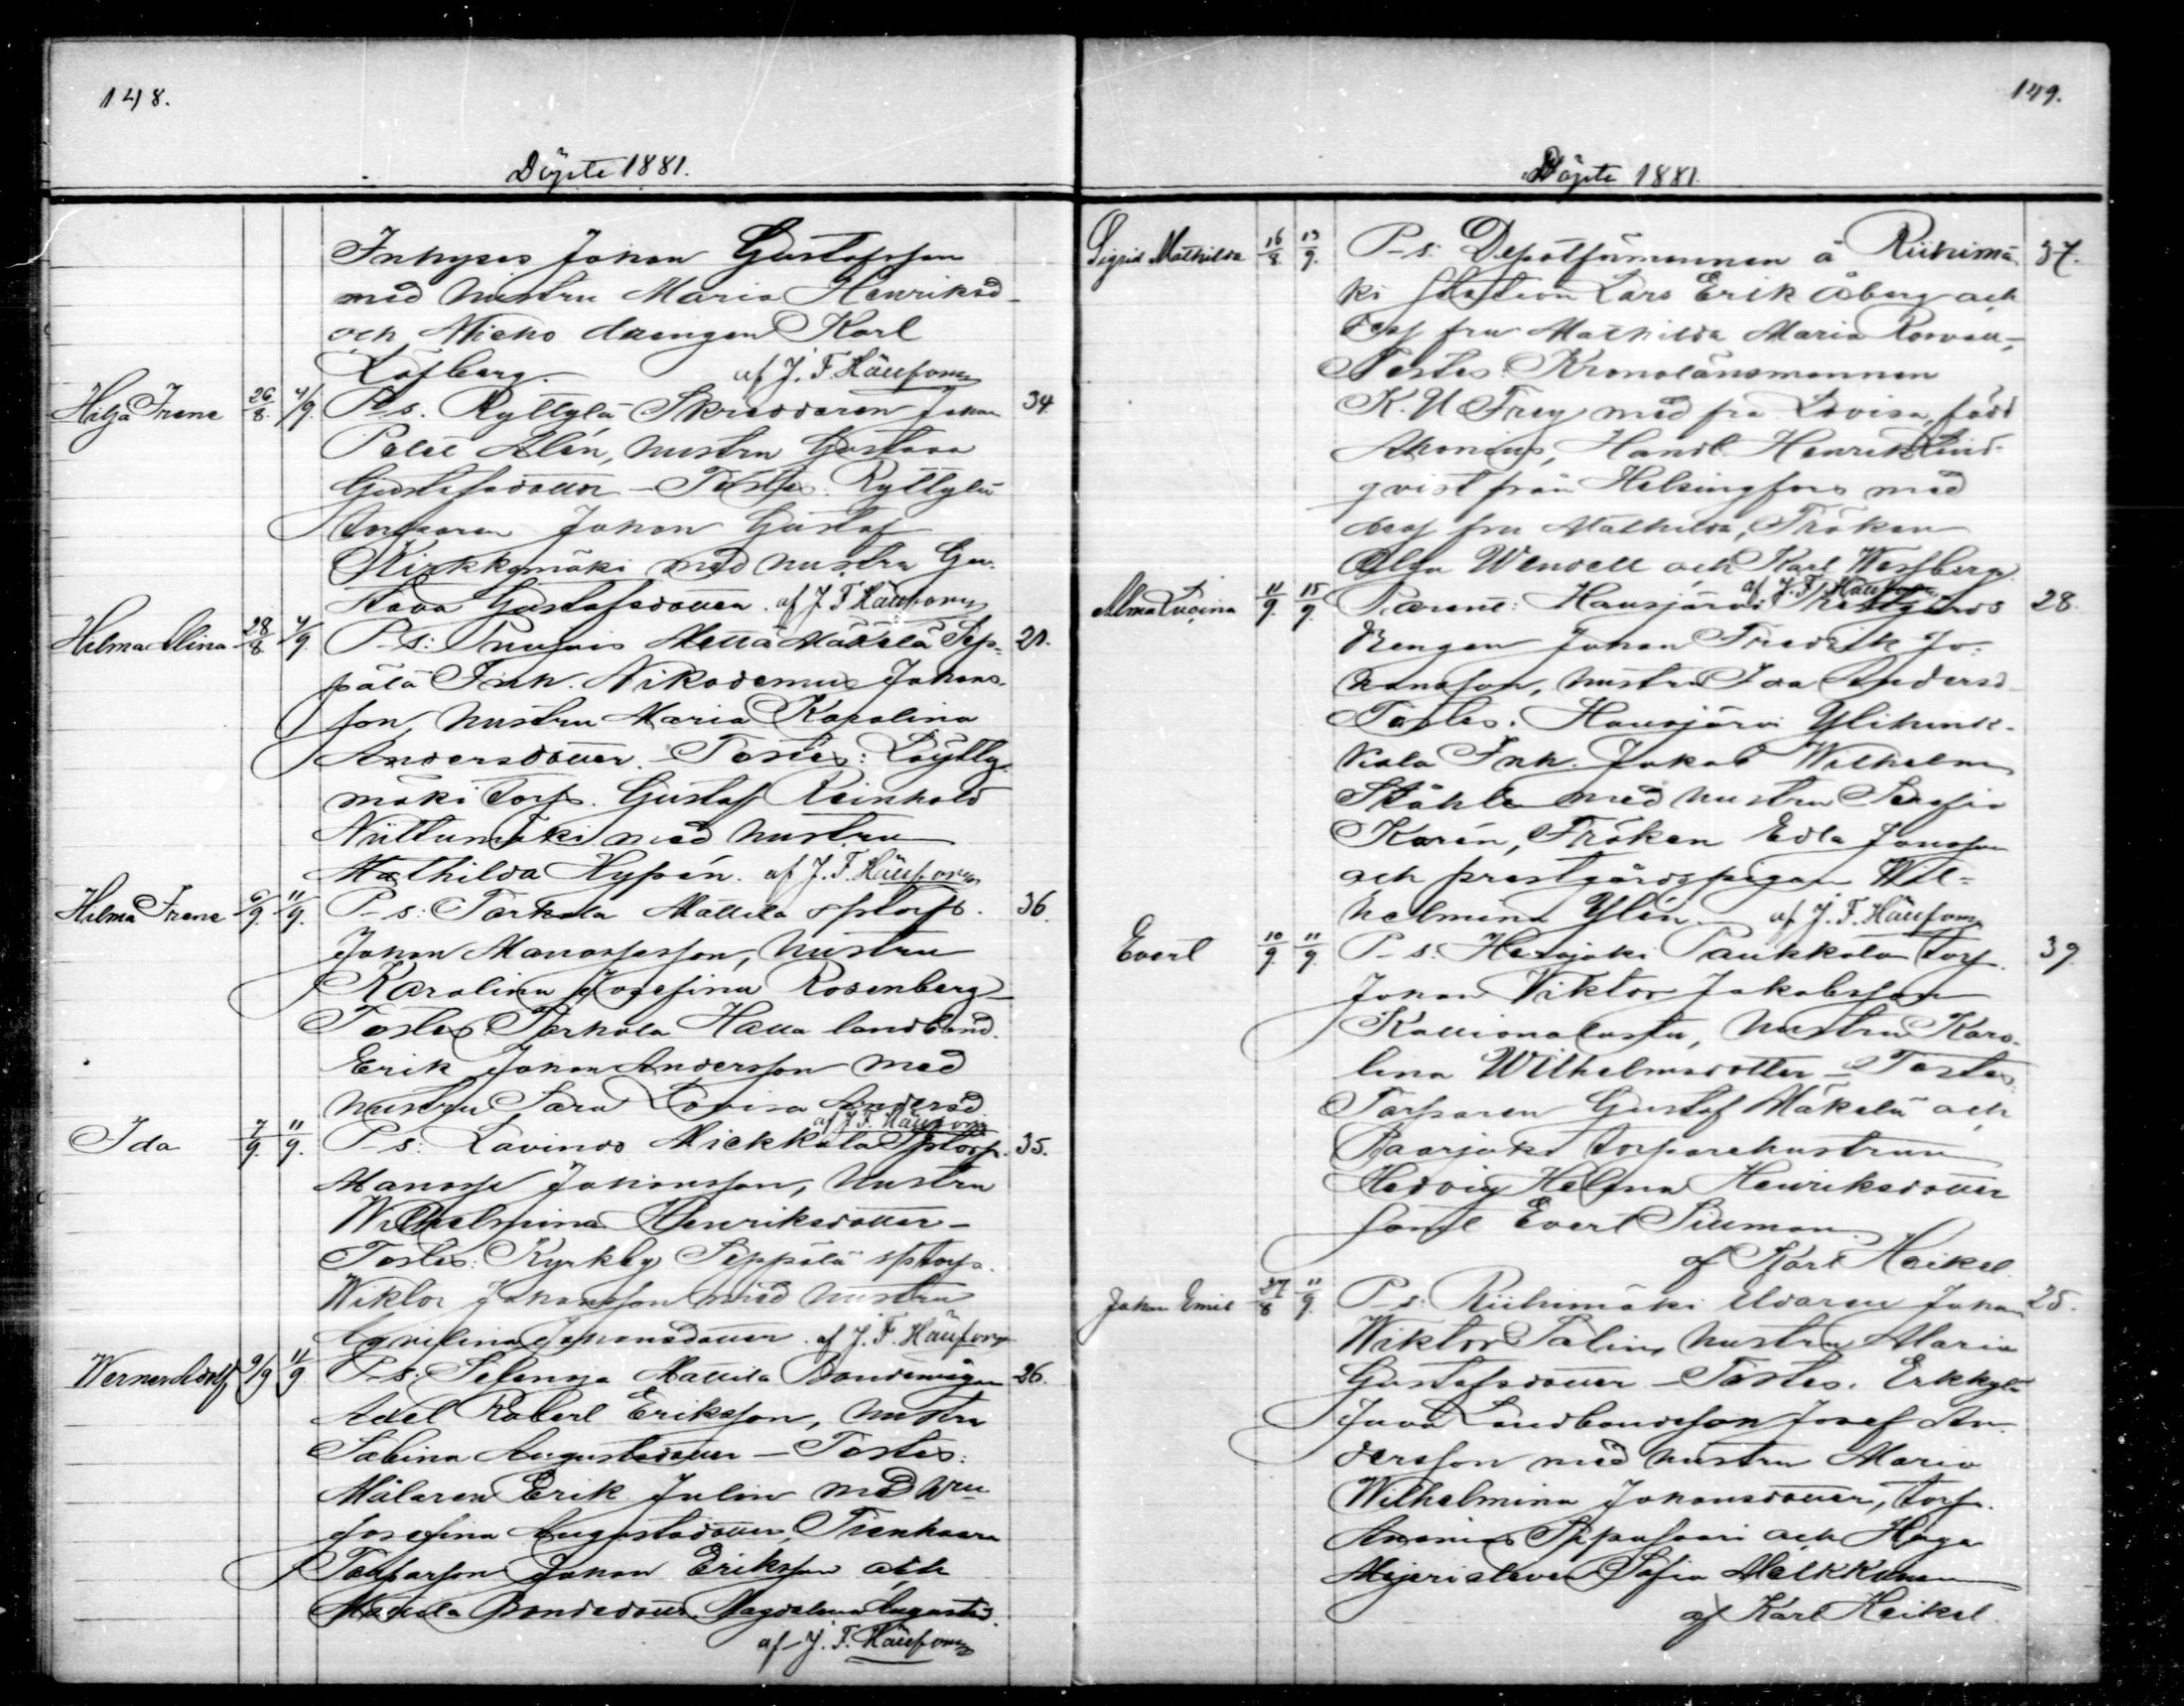 148.
Döpte 1881.
Inhyses Johan Gustafsson
med hustru Maria Henriksd
och Karl
Löfberg. af J. F. Häyfors
Hilja Irene 26/8. 4/9. P-s. Ryttylä Skreddaren Johan 34.
Alén, hustru Gustava
Gustafsdotter - Testes: Ryttylä
torparen Johan Gustaf
Kirkkomäki med hustru Gu-
stava Gustafsdotter. af J. F. Häyfors
Helma Alina 28/8 4/9. P-s: Mattä Mäkelä Sep- 21.
pälä Inh. Nikodemus Johans-
son, hustru Maria Karolina
Andersdotter. Testes: Löytty-
mäki torp. Gustaf Reinhold
Niittumäki med hustru
Mathilda Hypén. af J. F. Häyfors
Hilma Irene 6/9. 11/9. P-s: Torhola Mattila sptorp. 36.
Johan Manassesson, hustru
Karolina Josefina Rosenberg -
Testes: Torhola Hatta landbond.
Erik Johan Andersson med
hustru Sara Lovisa Andersd
af J. F. Häyfors
Ida 7/9. 11/9. P-s: Lavinto Mickkola sptorp. 35.
Manasse Johansson, hustru
Wilhelmina Henriksdotter -
Testes: Kyrkby Seppälä sptorp.
Wiktor Johansson med hustru
Johansdotter. af J. F. Häyfors
Werner Adolf 9/9 11/9 P-s: Selänoja Mattila Bondemågen 26.
Axel Robert Eriksson, hustru
Sabina Augustsdotter - Testes:
Målaren Erik Julin med hru
Josefina Augustsdotter, Tienhaara
Torparson Johan Eriksson och
Mattila Bondedotter Magdalena Augustsd.
af J. F. Häyfors
149.
Döpte 1881.
Sigrid Mathilda 16/8. 13/9. P-s: Depotförmannen å Riihimä- 37.
ki station Lars Erik Åberg och
dess fru Mathilda Maria
Testes: Kronolänsmannen
K. U Frey med fru Lovisa, född
Ahonius, Handl Henrik Lind-
qvist från Helsingfors med
dess fru Mathilda, Fröken
Olga Wendell och Karl Westberg
af J. F. Häyfors
Alma Lucina 11/9. 15/9. Parent: Hausjärvi Prestgårds 28.
Drengen Johan Fredrik Jo-
hansson, hustru Ida Andersd
Testes. Hausjärvi Ylihink-
kala Inh. Jakob Wilhelm
Ståhle med hustru Serafia
Karén, Fröken Edla Jonsson
och prestgårdspigan Wil-
helmina Ylén. af J. F. Häyfors
Evert 10/9. 11/9. P-s: Herajoki Paukkola torp. 39.
Johan Viktor Jakobsson
Kallionalusta, hustru Karo-
lina Wilhelmsdotter - Testes:
Torparen Gustaf Mäkelä och
torparehustrun
Hedvig Helena Henriksdotter
samt Evert
af Karl Heikel.
Johan Emil 27/8 11/9. P-s: Riihimäki eldaren Johan 25.
Wiktor Salin, hustru Maria
Gustafsdotter - Testes. Erkkylä
Juva Landbondeson Josef An-
dersson med hustru Maria
Wilhelmina Johansdotter, torp.
och Haga
Mejerieleven Sofia Malkkunen
af Karl Heikel.